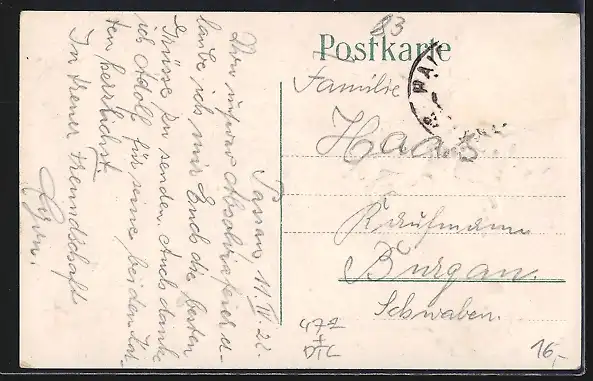 83
Postkarte
Familie
Haas
Kaufmann
Burgau.
Schwaben.
Passau 11.IV.22.
Von unserer Abschiedsfeier er-
laube ich mir Euch die besten
Grüsse zu senden. Auch danke
ich Adolf für seine beiden Kar-
ten herzlichst
In treuer Freundschaft
472
+
DTC
16,-